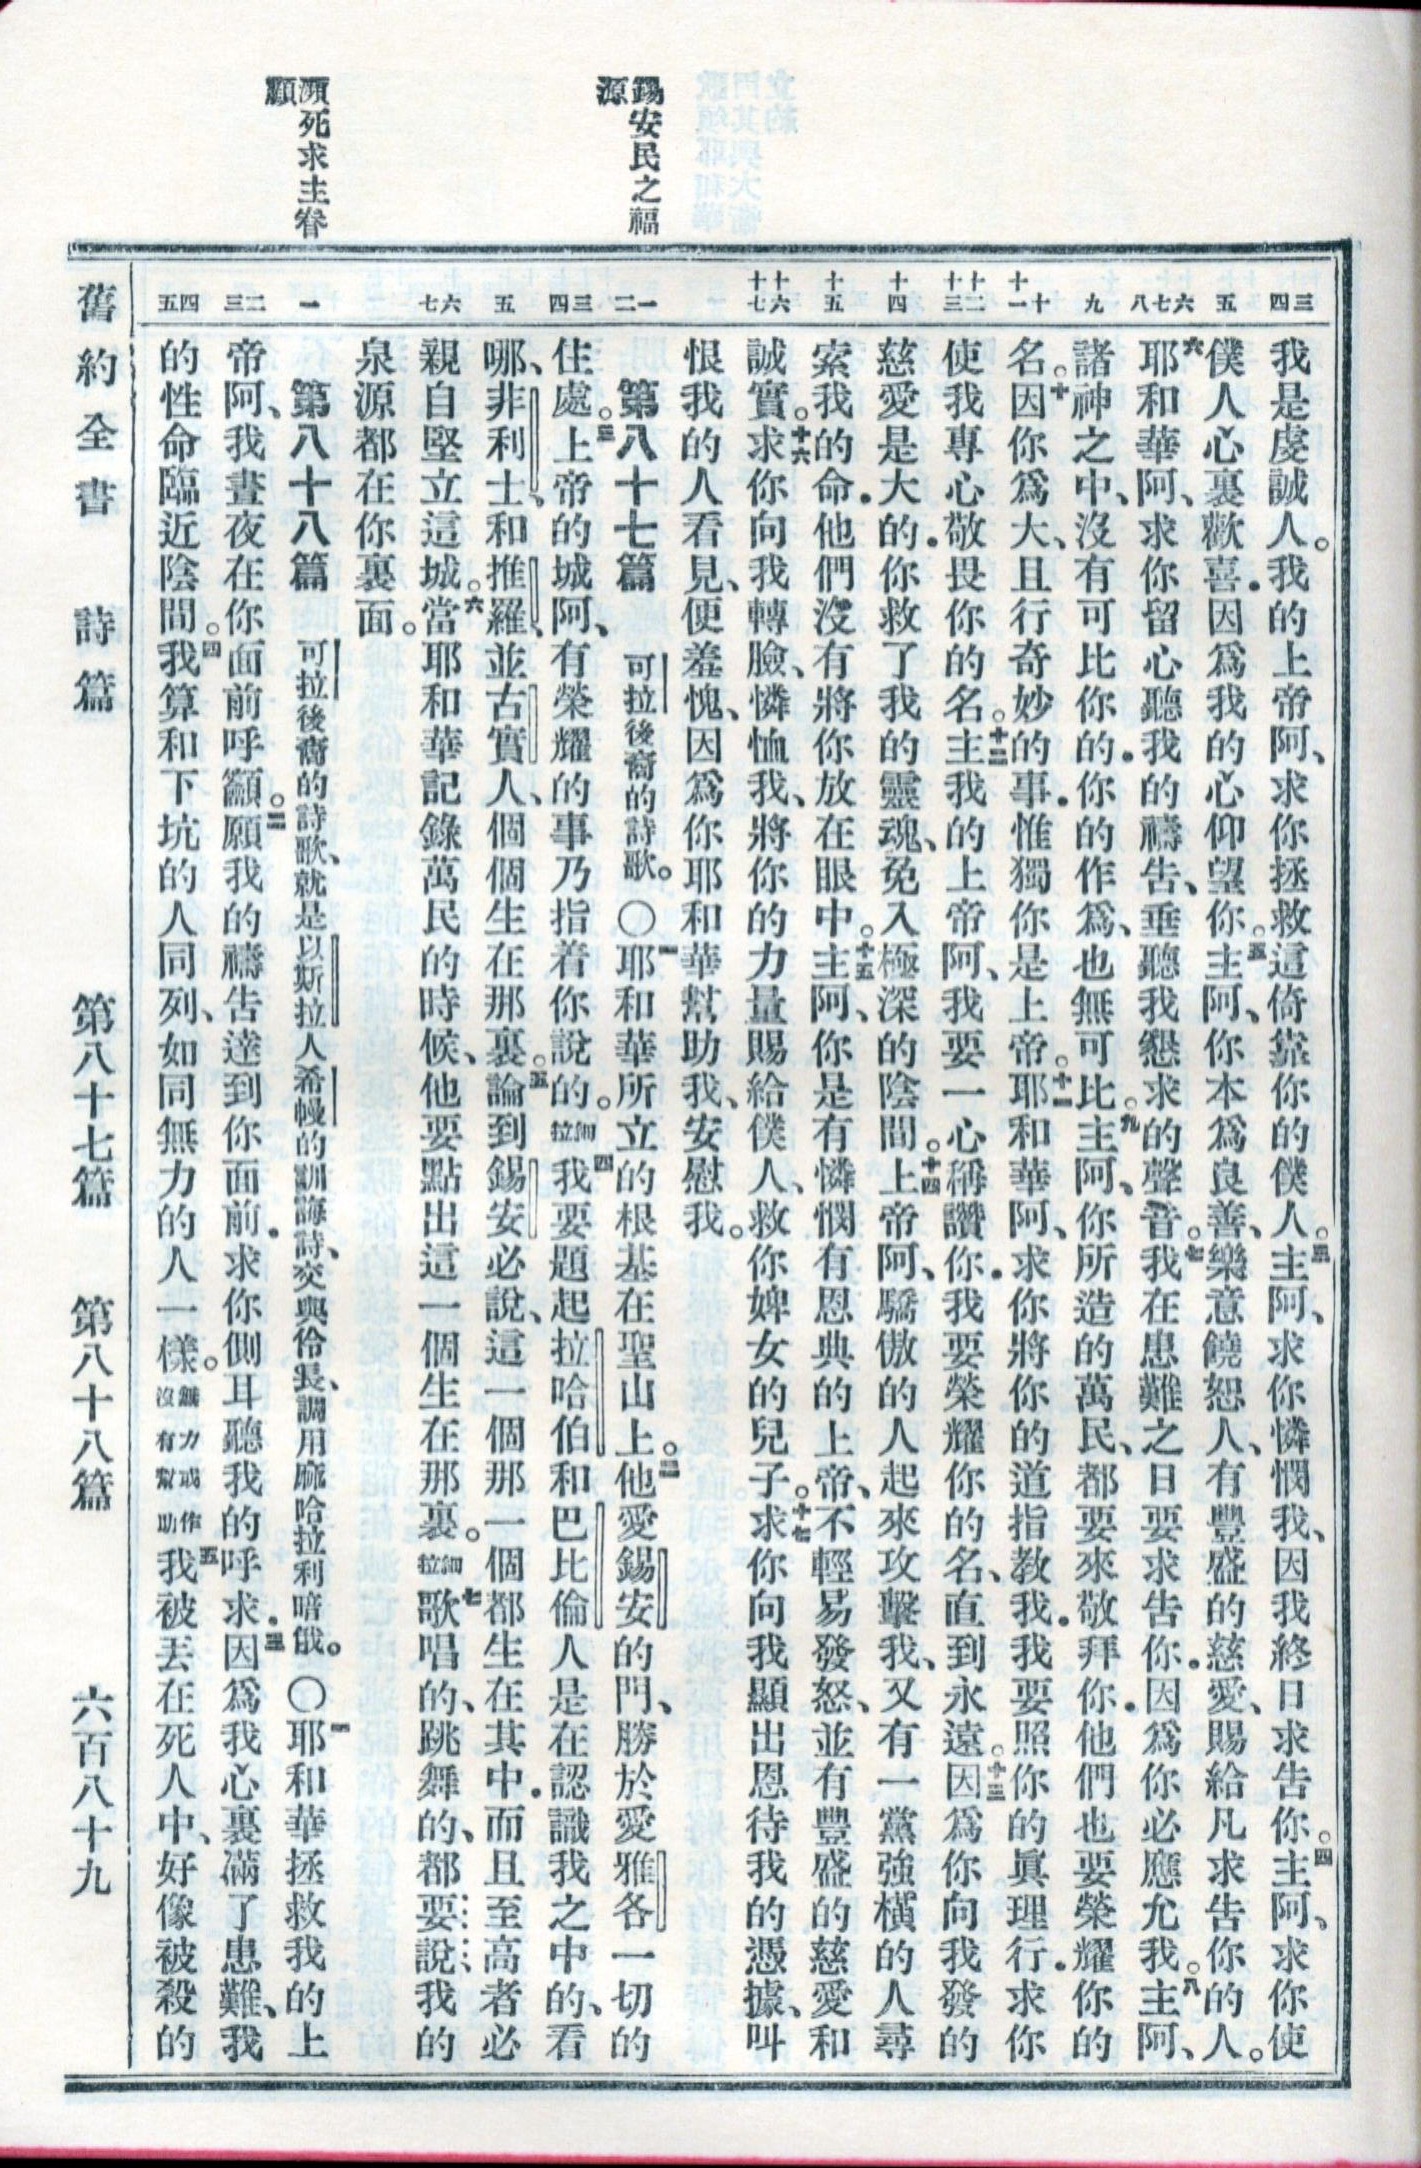 錫安民之福
源
瀕死求主眷
顧
三四
五
六七八
九
十十一
十二十三
十四
十五
十六十七
一二
三四
五
六七
一
二三
四五
我是虔誠人。我的上帝阿、求你拯救這倚靠你的僕人。三主阿、求你憐憫我、因我終日求告你。四主阿、求你使
僕人心裏歡喜．因爲我的心仰望你。五主阿、你本爲良善、樂意饒恕人、有豐盛的慈愛、賜給凡求告你的人。
六耶和華阿、求你留心聽我的禱告、垂聽我懇求的聲音。七我在患難之日要求告你．因爲你必應允我。八主阿、
諸神之中、沒有可比你的．你的作爲、也無可比。九主阿、你所造的萬民、都要來敬拜你．他們也要榮耀你的
名。十因你爲大、且行奇妙的事．惟獨你是上帝。十一耶和華阿、求你將你的道指教我．我要照你的眞理行．求你
使我專心敬畏你的名。十二主我的上帝阿、我要一心稱讚你．我要榮耀你的名、直到永遠。十三因爲你向我發的
慈愛是大的．你救了我的靈魂、免入極深的陰間。十四上帝阿、驕傲的人起來攻擊我、又有一黨強橫的人尋
索我的命．他們沒有將你放在眼中。十五主阿、你是有憐憫有恩典的上帝、不輕易發怒、並有豐盛的慈愛和
誠實。十六求你向我轉臉、憐恤我、將你的力量賜給僕人、救你婢女的兒子。十七求你向我顯出恩待我的憑據、叫
恨我的人看見、便羞愧、因爲你耶和華幫助我、安慰我。
第八十七篇 可拉後裔的詩歌。〇一耶和華所立的根基在聖山上。二他愛錫安的門、勝於愛雅各一切的
住處。三上帝的城阿、有榮耀的事乃指着你說的。細拉四我要題起拉哈伯和巴比倫人是在認識我之中的、看
哪、非利士、和推羅、並古實人、個個生在那裏。五論到錫安必說、這一個那一個都生在其中．而且至高者必
親自堅立這城。六當耶和華記錄萬民的時候、他要點出這一個生在那裏。細拉七歌唱的、跳舞的、都要說我的
泉源都在你裏面。
第八十八篇 可拉後裔的詩歌、就是以斯拉人希幔的訓誨詩、交與伶長、調用麻哈拉利暗俄。〇一耶和華拯救我的上
帝阿、我晝夜在你面前呼籲。二願我的禱告達到你面前．求你側耳聽我的呼求．三因爲我心裏滿了患難、我
的性命臨近陰間。四我算和下坑的人同列、如同無力的人一樣。無力或作沒有幫助五我被丟在死人中、好像被殺的
舊約全書 詩篇 第八十七篇 第八十八篇 六百八十九